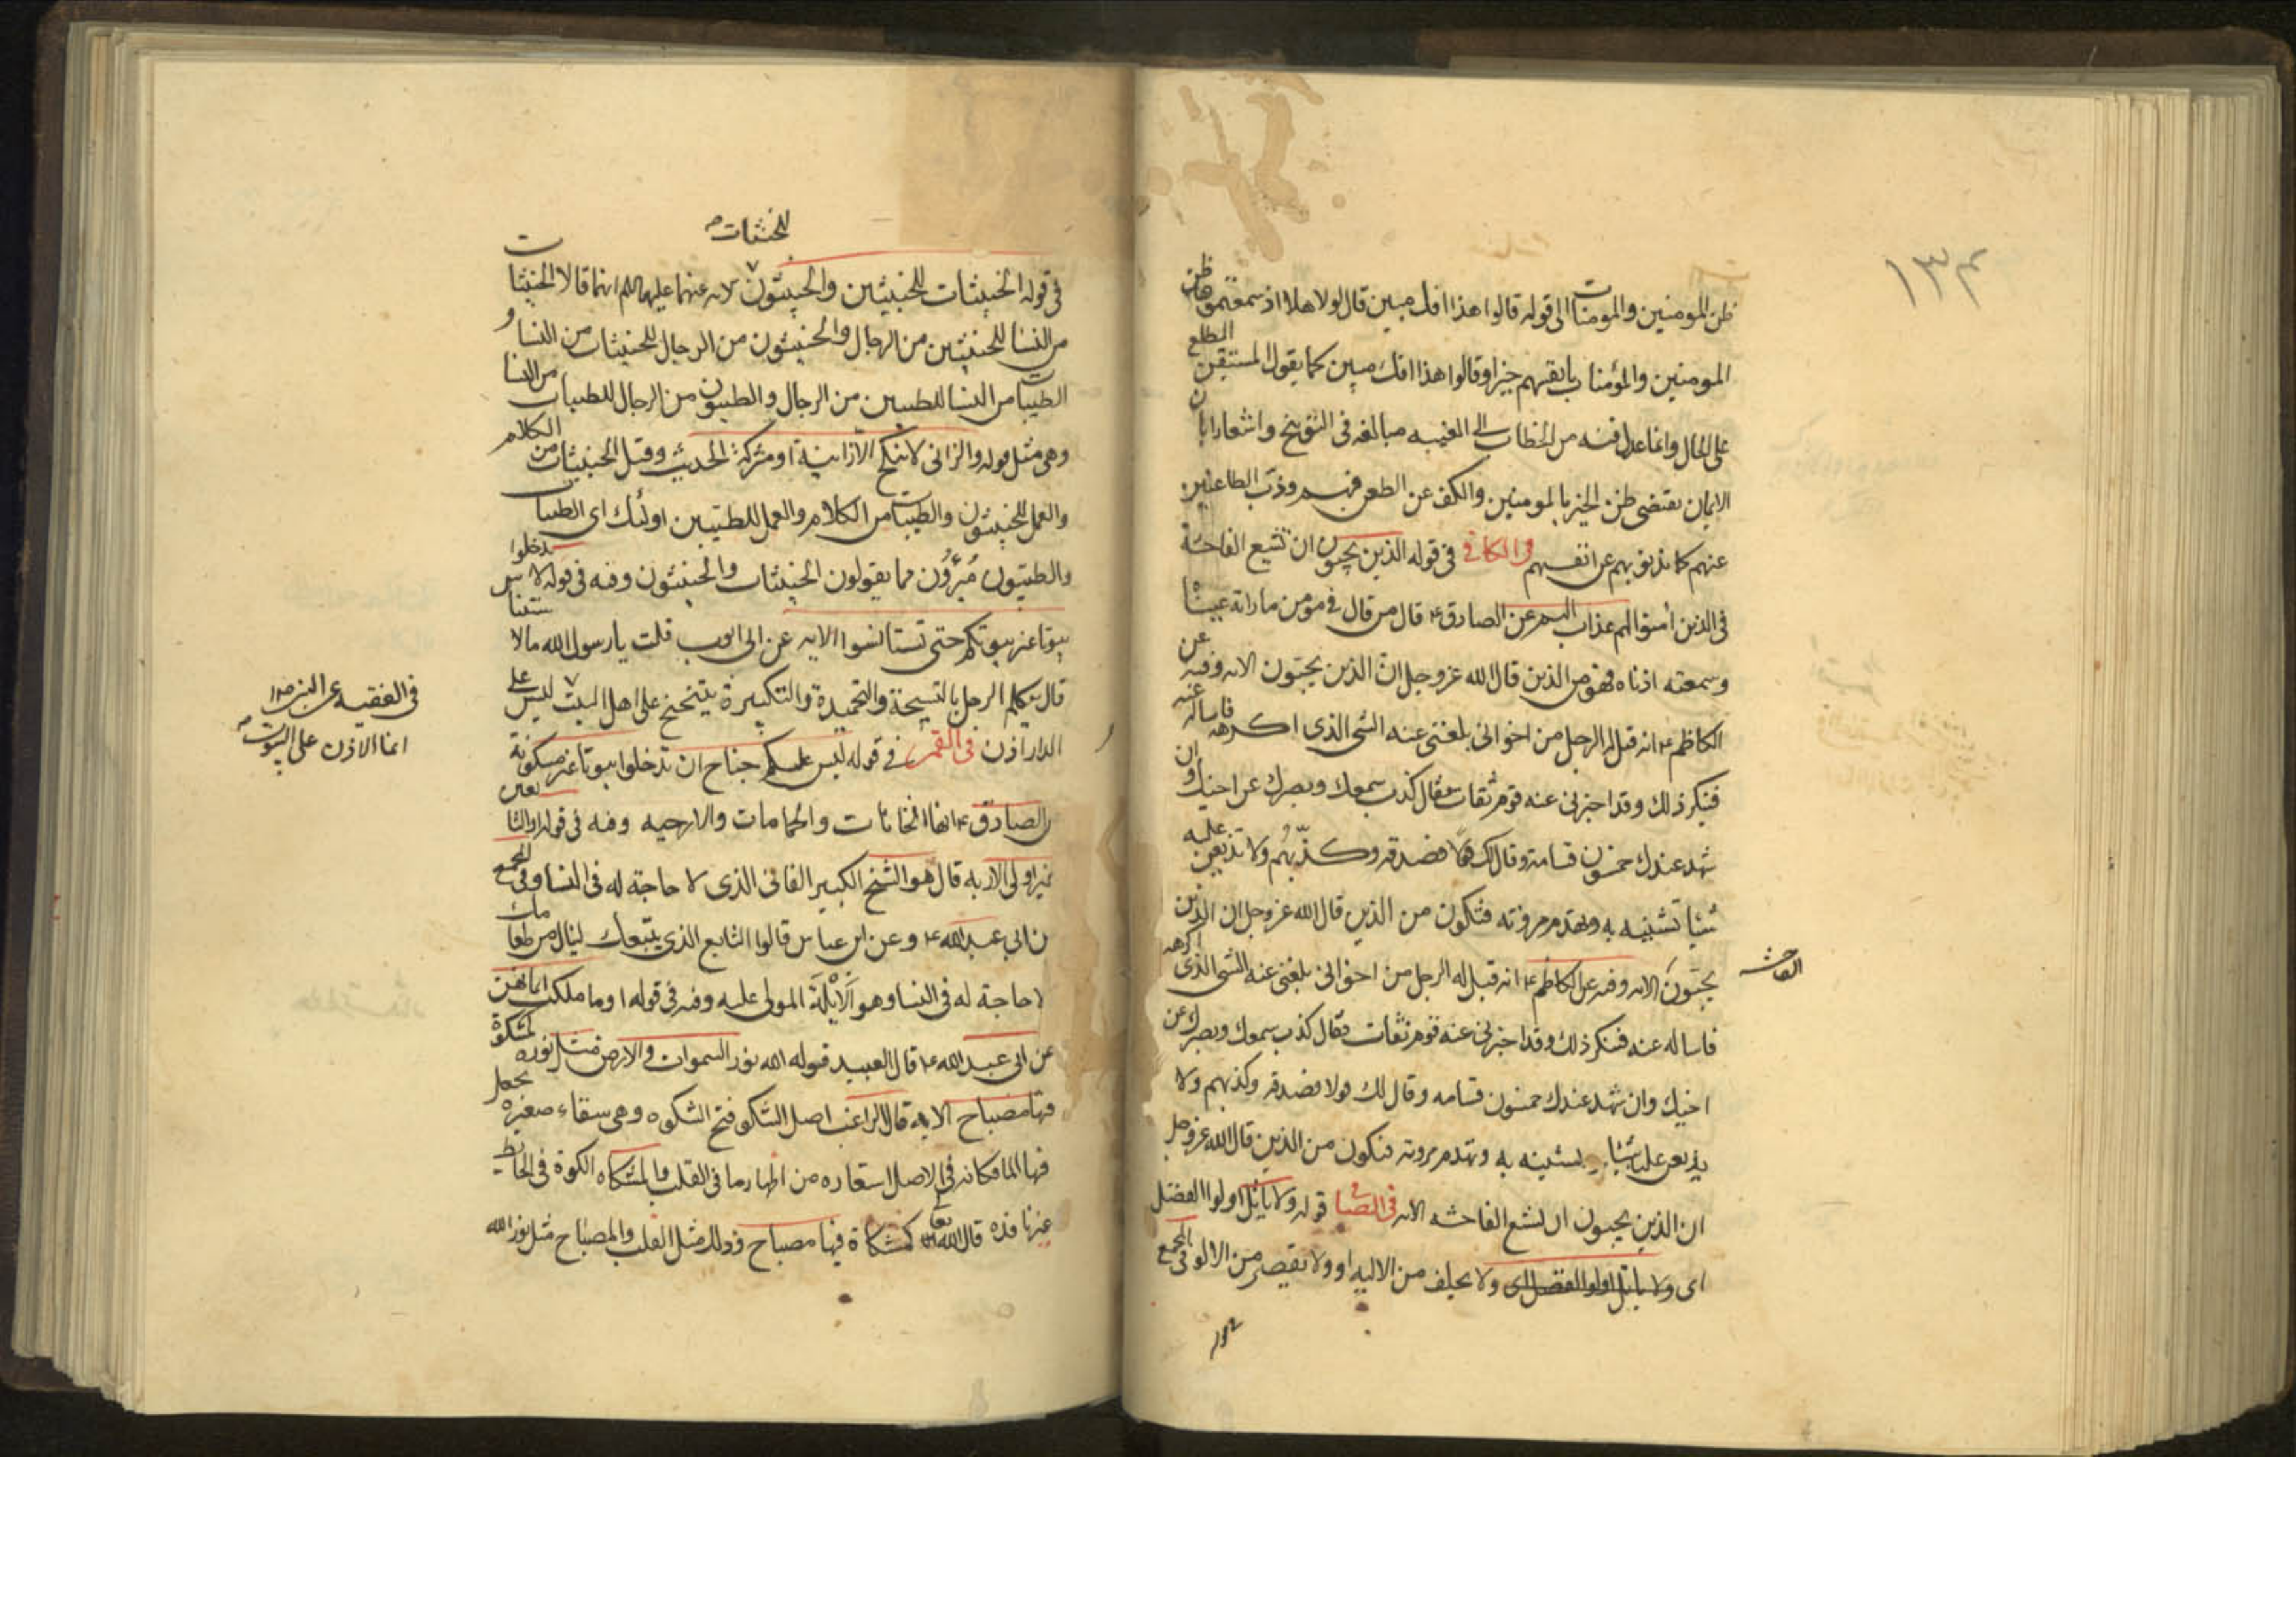 ١٣٤
ظن المومنين والمومنات الى قوله قالوا هذا افك مبين قال لولا هلا اذ سمعتموه ظن
المومنين والمؤمنات بانفسهم خيرا وقالوا هذا افك مبين كما يقول المستيقن المطلع
على الحال وانما عدل فيه من الخطاب الى الغيبه مبالغه فى التوبيخ واشعارا بان
الايمان يقتضى ظن الخير بالمومنين والكف عن الطعن فيهم وذب الطاعنين
عنهم كما يذبونهم عن انفسهم وفى الكافى فى قوله الذين يحبون ان تشيع الفاحشة
فى الذين امنوا لهم عذاب اليم عن الصادق ع قال من قال فى مومن ما راته عيناه
وسمعته اذناه فهو من الذين قال الله عز وجل ان الذين يحبون الايه وفيه عن
الكاظم ع انه قيل له الرجل من اخوانى بلغنى عنه الشى الذى اكرهه فاساله عنه
فينكر ذلك وقد اخبرنى عنه قوم ثقات فقال كذب سمعك وبصرك عن اخيك وان
شهد عندك خمسون قسامة وقال لك قولا فصدقه وكذبهم ولا تذيعن عليه
شيئا تشينه به وتهدم مروته فتكون من الذين قال الله عز وجل ان الذين
يحبون الايه وفيه عن الكاظم ع انه قيل له الرجل من اخوانى بلغنى عنه الشى الذى اكرهه
الفاحشه
فاساله عنه فينكر ذلك وقد اخبرنى عنه قوم ثقات فقال كذب سمعك وبصرك عن
اخيك وان شهد عندك خمسون قسامه وقال لك قولا فصدقه وكذبهم ولا
يذيعن عليه شيئا يشينه به وتهدم مروته فتكون من الذين قال الله عز وجل
ان الذين يحبون ان تشيع الفاحشه الايه فى الصافى قوله ولا ياتل اولوا الفضل
اى ولا ياتل اولوا الفضل اى ولا يحلف من الاليه او ولا يقصر من الالو فى المجمع
للخبيثات
فى قوله الخبيثات للخبيثين والخبيثون الايه عنهما عليهما السلام انهما قالا الخبيثات
من النسا للخبيثين من الرجال والخبيثون من الرجال للخبيثات من النسا و
الطيبات من النسا للطيبين من الرجال والطيبون من الرجال للطيبات من النسا
وهى مثل قوله والزانى لا ينكح الا زانية او مشركة الحديث وقيل الخبيثات من الكلام
والعمل للخبيثون والطيبات من الكلام والعمل للطيبين اولئك اى الطيبات
والطيبون مبرؤن مما يقولون الخبيثات والخبيثون وفيه فى قوله لا تدخلوا
بيوتا غير بيوتكم حتى تستانسوا الايه عن ابى ايوب قلت يا رسول الله ما الا ستيناس
قال يتكلم الرجل بالتسبيحة والتحميدة والتكبيرة يتنحنح على اهل البيت ليس على
فى الفقيه عن النبى ص
انما الاذن على البيوت
الدار اذن فى القمى فى قوله ليس عليكم جناح ان تدخلوا بيوتا غير مسكونة
الصادق ع انها الخانات والحمامات والارحيه وفيه فى قوله او التابعين
غير اولى الاربه قال هو الشيخ الكبير الفانى الذى لا حاجة له فى النسا وفى المجمع
ابى عبد الله ع وعن ابن عباس قالوا التابع الذى يتبعك لينال من طعامك
لا حاجة له فى النسا وهو الابله المولى عليه وفيه فى قوله او ما ملكت ايمانهن
عن ابى عبد الله ع قال العبيد قوله الله نور السموات والارض مثل نوره كمشكوة
فيها مصباح الايه قال الراغب اصل الشكو فتح الشكوه وهى سقاء صغيره يجعل
فيها الما فكانه فى الاصل استعاره من اظهار ما فى القلب والمشكاه الكوة فى الحايط
غير نافذه قال الله تعالى كمشكاة فيها مصباح وذلك مثل القلب والمصباح مثل نور الله